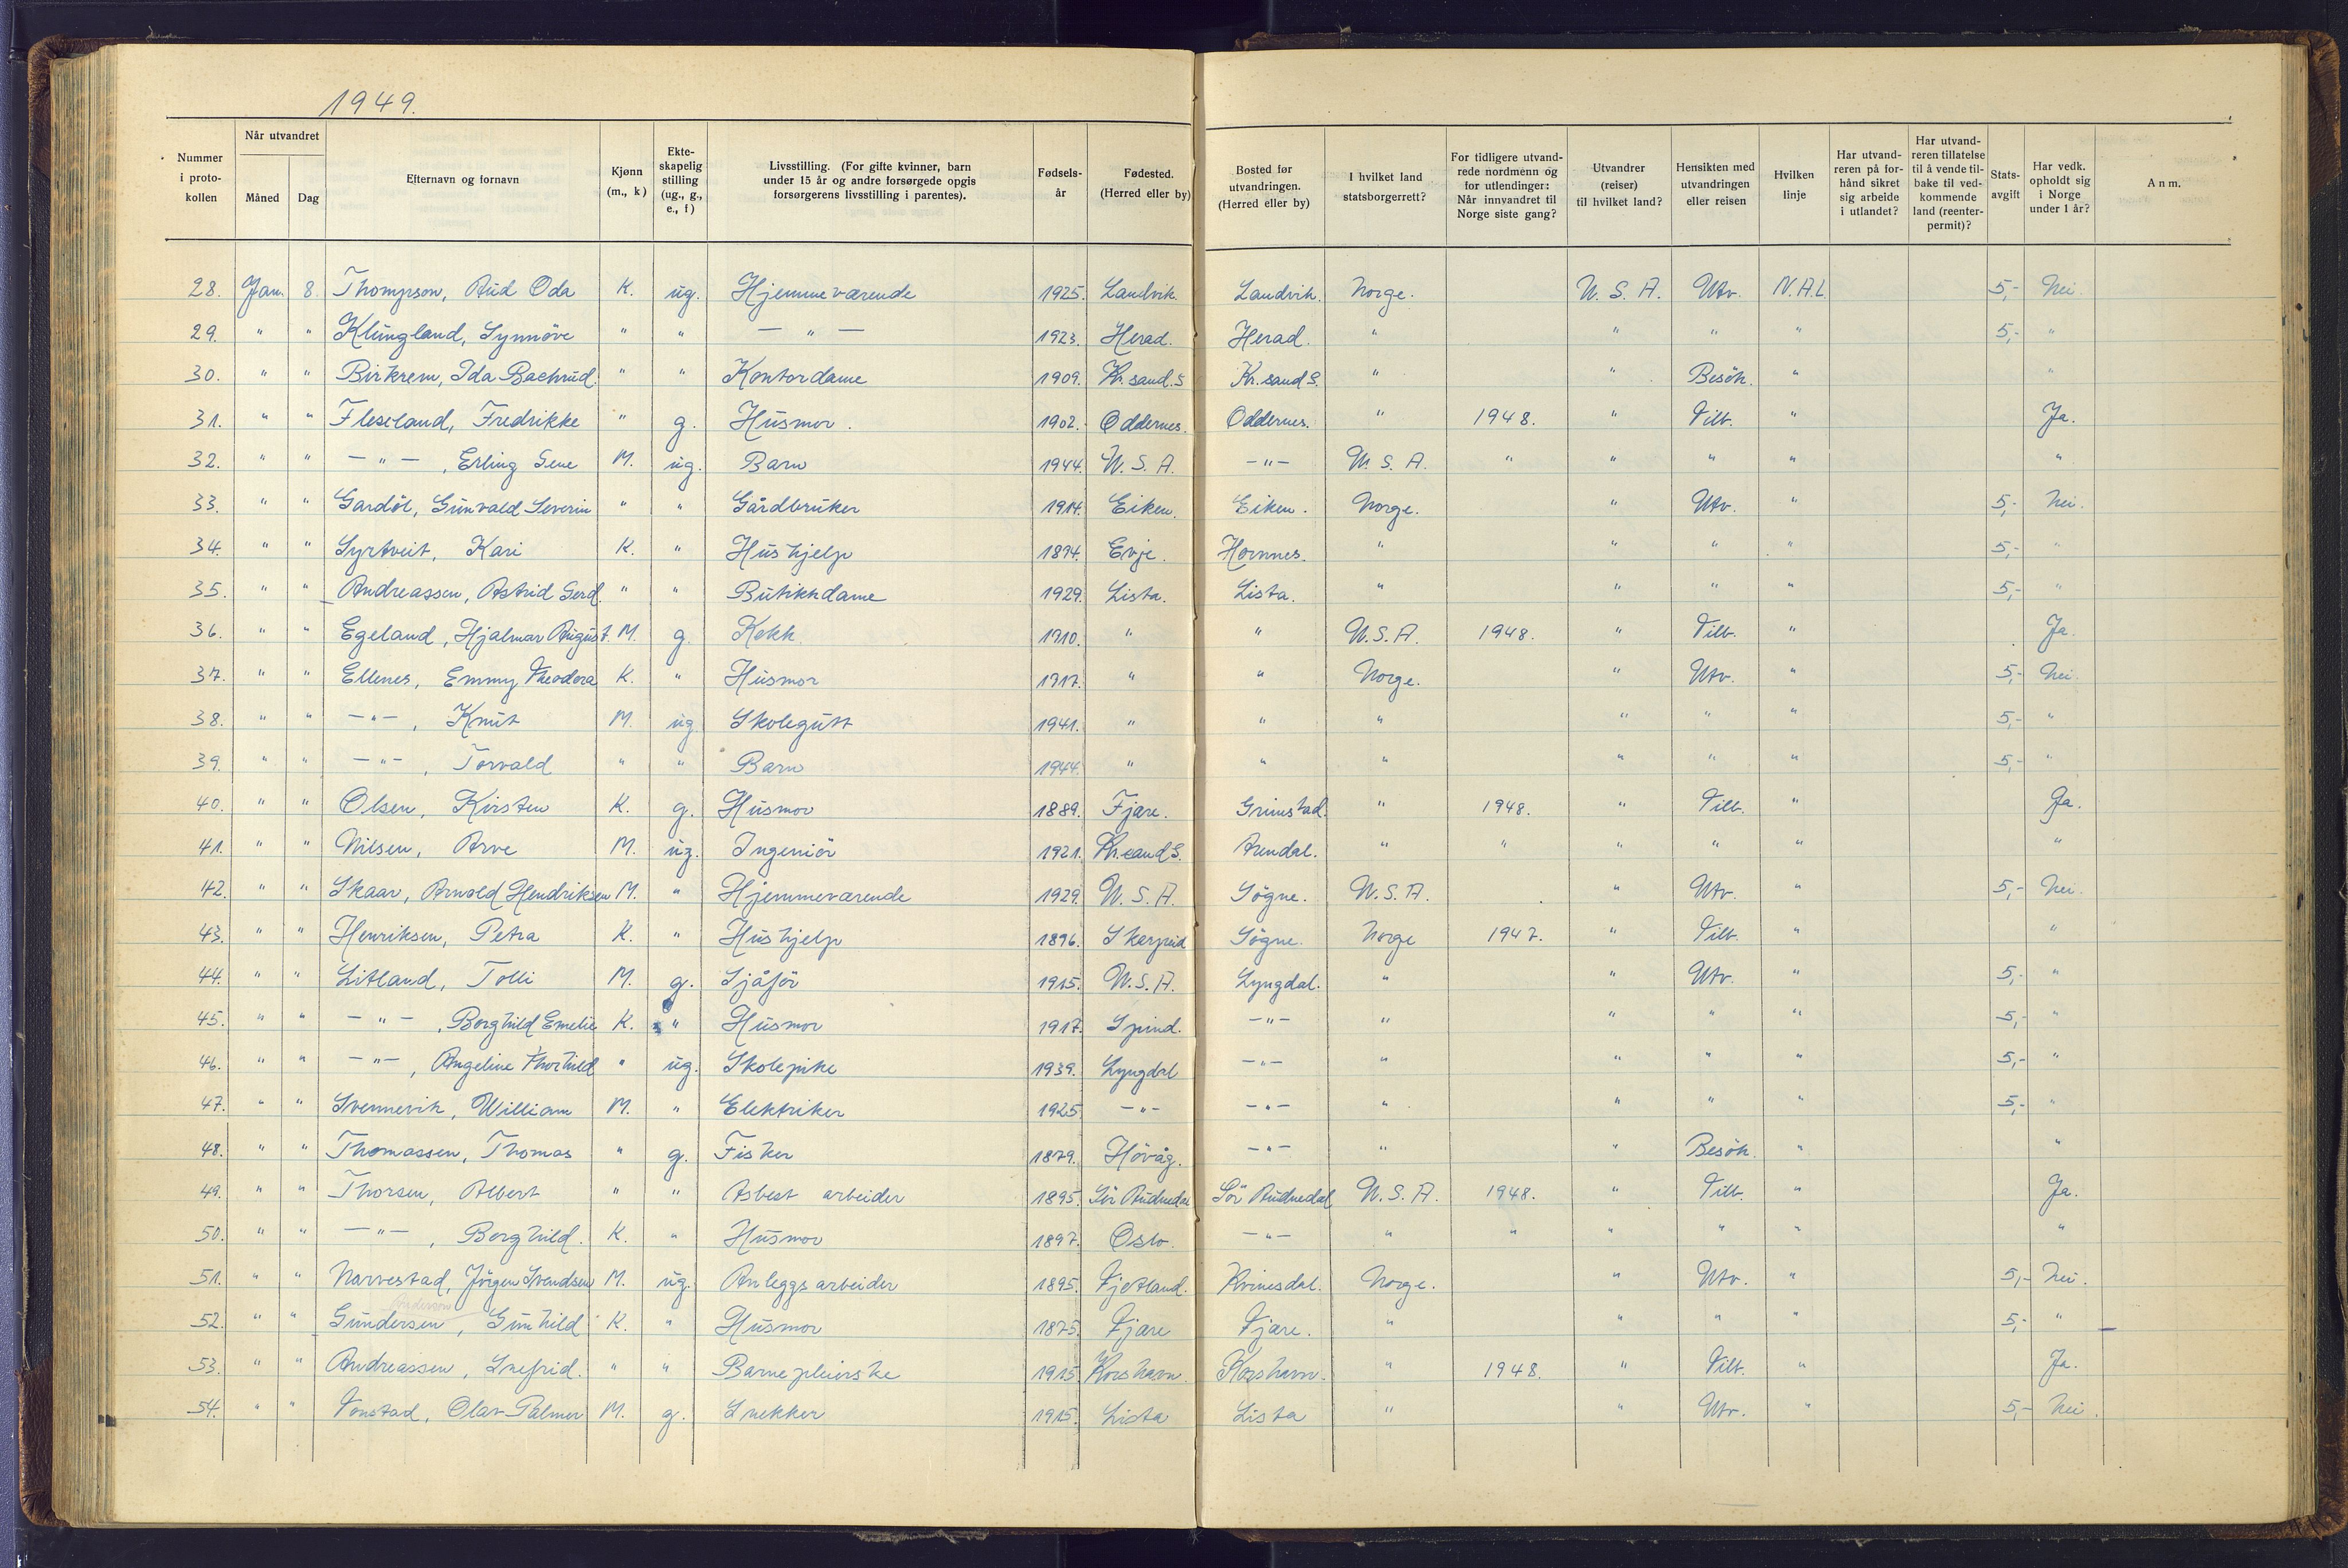 1949.
Nummer i proto-kollen | Når utvandret Måned | Dag | Efternavn og fornavn | Kjønn (m., k) | Ekte-skapelig stilling (ug., g., e., f) | Livsstilling. (For gifte kvinner, barn under 15 år og andre forsørgede opgis forsørgerens livsstilling i parentes). | Fødsels-år | Fødested. (Herred eller by) | Bosted før utvandringen. (Herred eller by) | I hvilket land statsborgerrett? | For tidligere utvand-rede nordmenn og for utlendinger: Når innvandret til Norge siste gang? | Utvandrer (reiser) til hvilket land? | Hensikten med utvandringen eller reisen | Hvilken linje | Har utvand-reren på for-hånd sikret sig arbeide i utlandet? | Har utvand-reren tillatelse til å vende til-bake til ved-kommende land (reenter-permit)? | Stats-avgift | Har vedk. opholdt sig i Norge under 1 år? | Anm.
28. Jan. 8 Thompson, Aud Oda K. ug. Hjemmeværende 1925. Landvik. Landvik. Norge. U. S. A. Utv. N.A.L 5,- Nei.
29. " " Klungland, Synnöve " " — " — 1923. Herad. Herad. " " " " 5,- "
30. " " Birkrem, Ida Bachrud. " " Kontordame 1909. Kr.sand.S Kr.sand S. " " Besök. " "
31. " " Fleseland, Fredrikke " g. Husmor. 1902. Oddernes. Oddernes. " 1948. " Tilb. " Ja.
32. " " — " —, Erling Gene M. ug. Barn 1944. U. S. A. — " — U. S. A. " " " " "
33. " " Gardöl, Gunvald Severin " " Gårdbruker 1914. Eiken. Eiken. Norge. " Utv. " 5,- Nei.
34. " " Syrtveit, Kari K. " Hushjelp 1894. Evje. Hornnes. " " " " 5,- "
35. " " Andreassen, Astrid Gerd. " " Butikkdame 1929. Lista. Lista. " " " " 5,- "
36. " " Egeland, Hjalmar August. M. g. Kokk 1910. " " U.S.A. 1948. " Tilb. " Ja.
37. " " Ellenes, Emmy Theodora K. " Husmor 1917. " " Norge. " Utv. " 5,- Nei.
38. " " — " —, Knut M. ug Skolegutt 1941. " " " " " " 5,- "
39. " " — " —, Torvald " " Barn 1944. " " " " " " 5,- "
40. " " Olsen, Kirsten K. g. Husmor 1889. Fjære. Grimstad. " 1948. " Tilb. " Ja.
41. " " Nilsen, Arve M. ug. Ingeniör 1921. Kr.sand S. Arendal. " " " " " "
42. " " Skaar, Arnold Hendriksen M. " Hjemmeværende 1929. U. S. A. Sögne. U. S. A. " Utv. " 5,- Nei.
43. " " Henriksen, Petra K. " Hushjelp 1896. Sögne. Norge 1947. " Tilb. " "
44. " " Litland, Tolli M. g. Sjåför 1915. U.S.A. Lyngdal. " " Utv. " 5,- "
45. " " — " —, Borghild Emelie K. " Husmor 1917. Spind. — " — " " " " 5,- "
46. " " — " —, Angeline Thorhild " ug. Skolepike 1939. Lyngdal — " — " " " " 5,- "
47. " " Svennevik, William M. " Elektriker 1925 — " — — " — " " " " 5,- "
48. " " Thomassen, Thomas " g. Fisker 1879. Hövåg. — " — " " Besök. " "
49. " " Thorsen, Albert " " Asbest arbeider 1895. Sör Audnedal Sör Audnedal U. S. A. 1948. " Tilb. " Ja.
50. " " — " —, Borghild. K. " Husmor 1897. Oslo. — " — " " " " " "
51. " " Narvestad, Jörgen Svendsen M. ug. Anleggsarbeider 1895. Fjotland. Kvinesdal. Norge. " Utv. " 5,- Nei.
Anderson
52. " " Gundersen, Gunhild K. " Husmor 1875. Fjære Fjære. " " " " 5,- "
53. " " Andreassen, Snefrid. " " Barnepleierske 1915. Korshavn. Korshavn. " 1948. " Tilb. " Ja.
54. " " Vonstad, Olav Palmer M. g. Snekker 1915. Lista Lista " " Utv. " 5,- Nei.